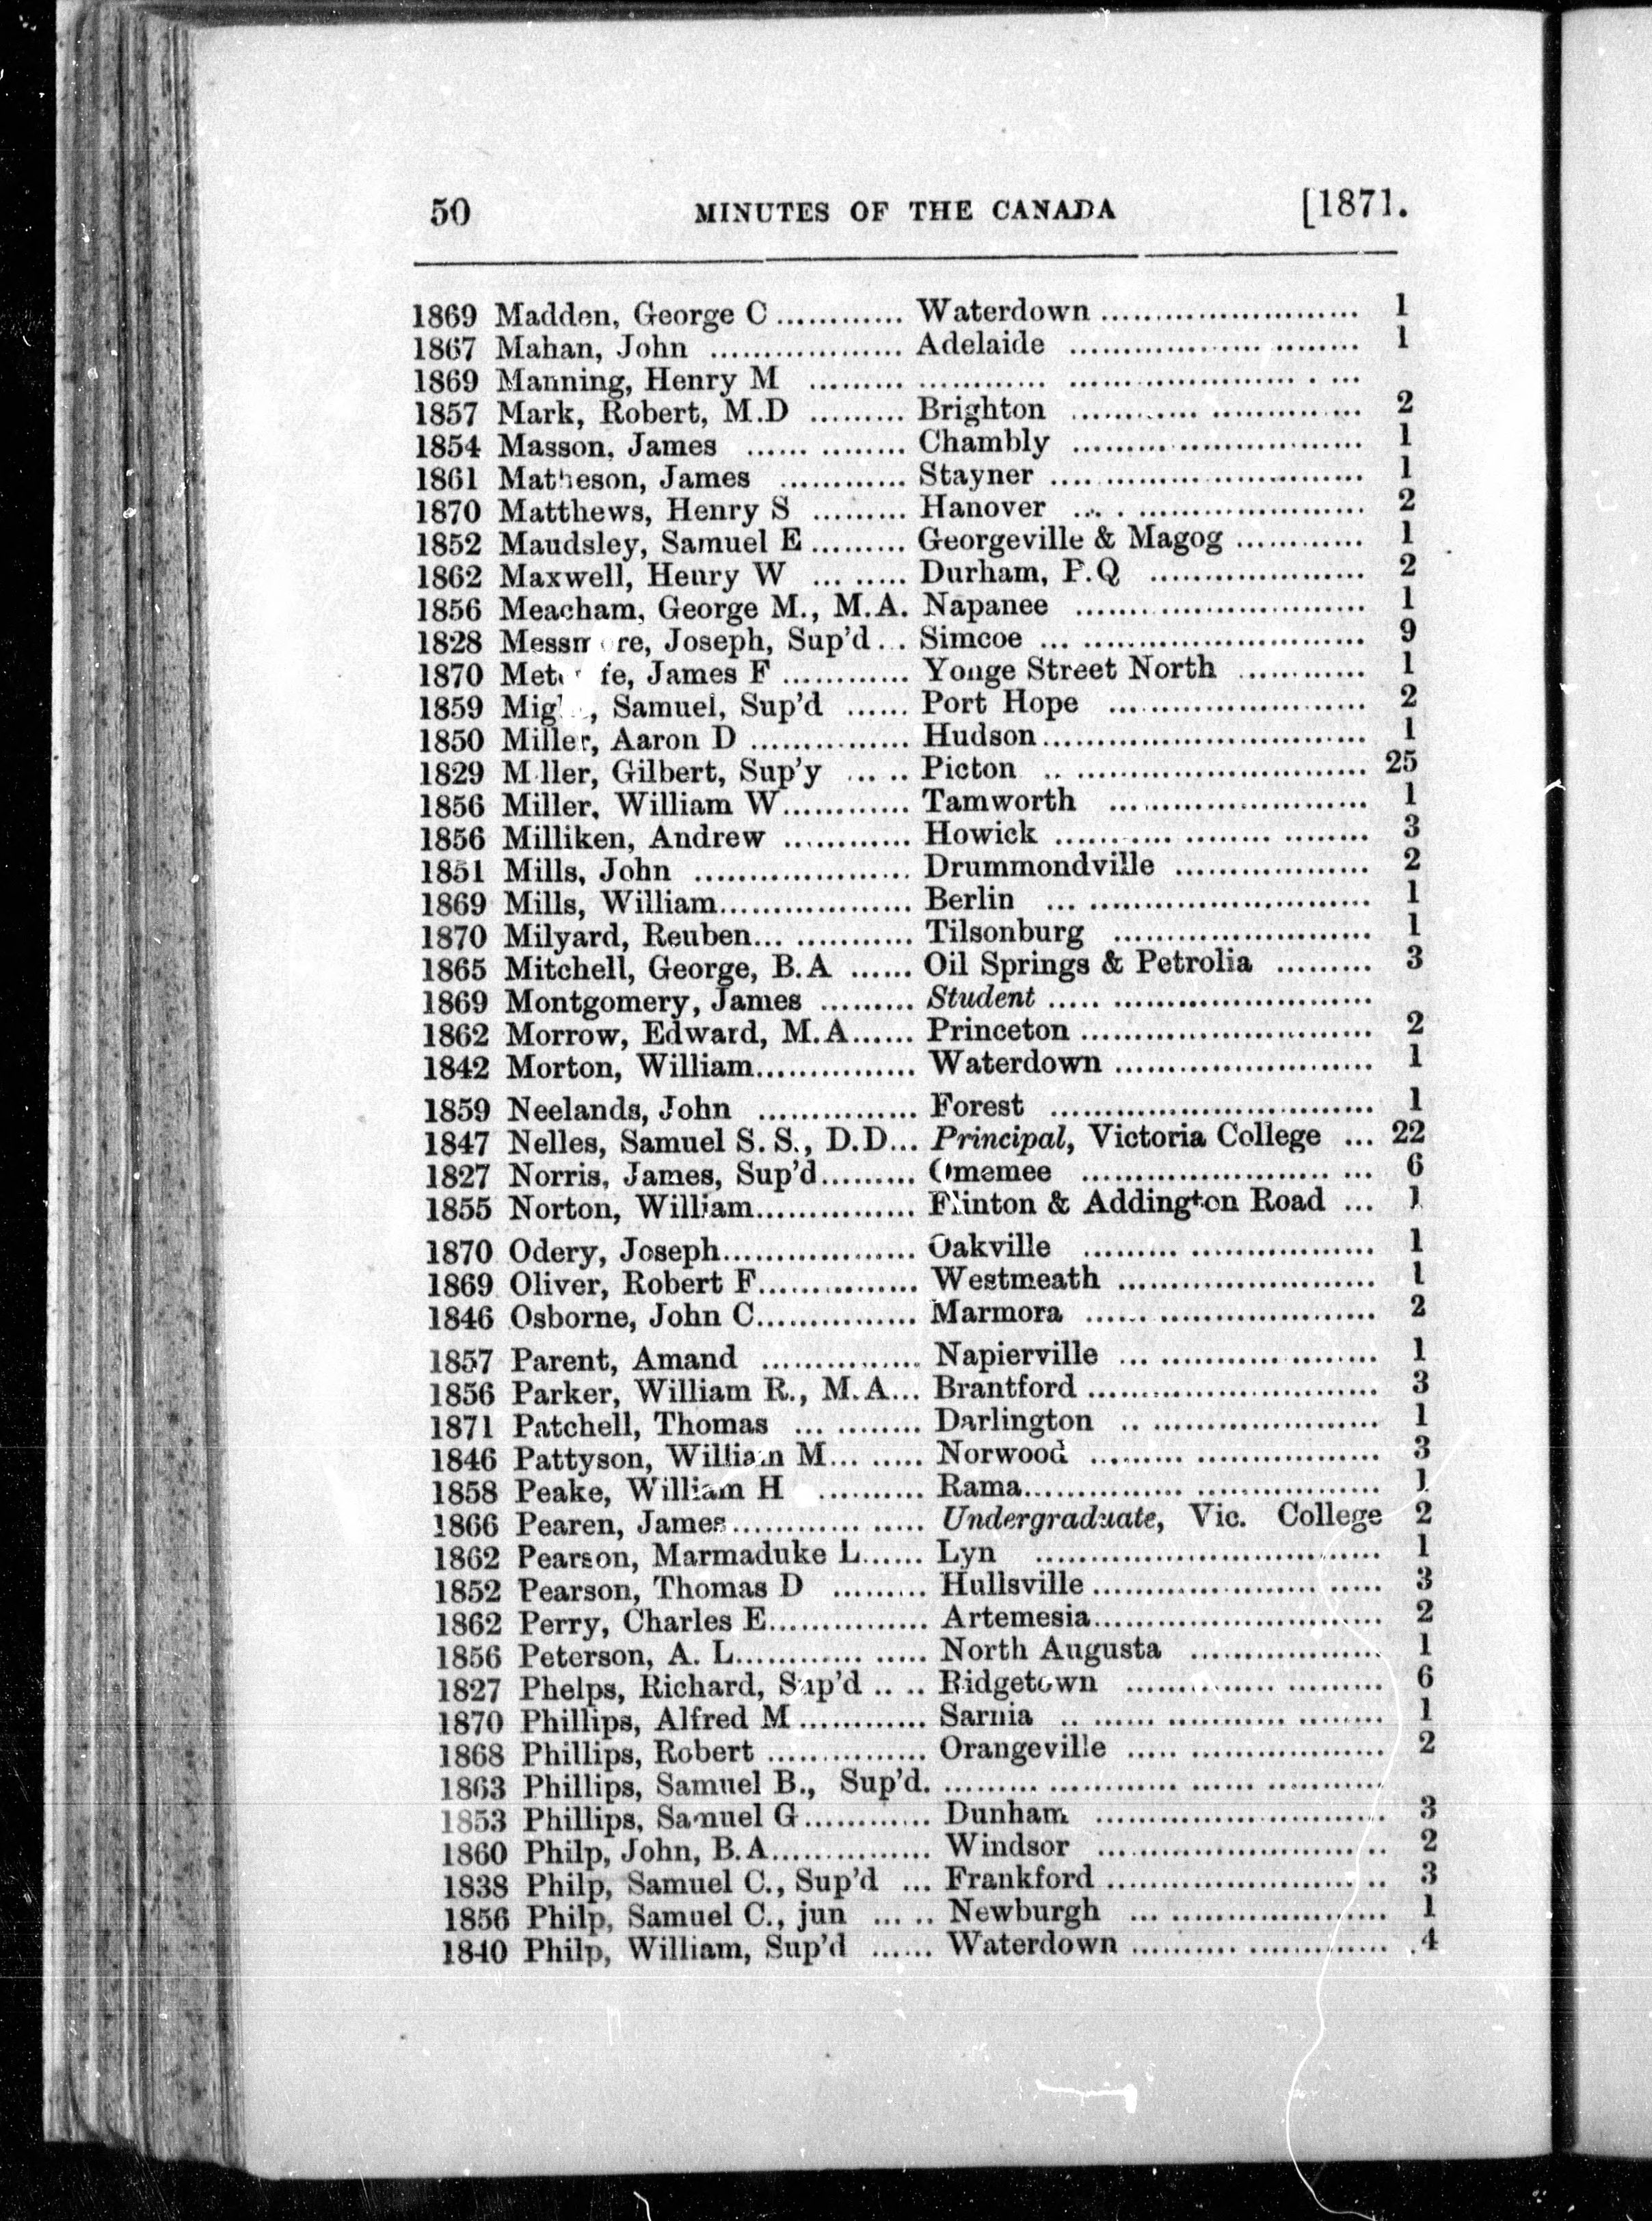 50 MINUTES OF THE CANADA [1871.
1869 Madden, George C ............ Waterdown ........................ 1
1867 Mahan, John .................. Adelaide ........................... 1
1869 Manning, Henry M ......... ............ ..................... . ...
1857 Mark, Robert, M.D ......... Brighton ............ .............. 2
1854 Masson, James ...... ........ Chambly ........................... 1
1861 Matheson, James ............ Stayner .... ........................ 1
1870 Matthews, Henry S ......... Hanover ... . ...................... 2
1852 Maudsley, Samuel E ......... Georgeville & Magog ............ 1
1862 Maxwell, Henry W ... ...... Durham, P.Q .................... 2
1856 Meacham, George M., M.A. Napanee ........................... 1
1828 Messmore, Joseph, Sup'd... Simcoe ... ........................... 9
1870 Met fe, James F ............ Yonge Street North ............ 1
1859 Mig , Samuel, Sup'd ...... Port Hope ........................ 2
1850 Miller, Aaron D ............... Hudson.............................. 1
1829 Miller, Gilbert, Sup'y ... .. Picton .. ........................... 25
1856 Miller, William W............ Tamworth ........................ 1
1856 Milliken, Andrew ............ Howick ............ ......... ........ 3
1851 Mills, John ..................... Drummondville .................. 2
1869 Mills, William.................. Berlin ... ........................... 1
1870 Milyard, Reuben... ........... Tilsonburg ........................ 1
1865 Mitchell, George, B.A ...... Oil Springs & Petrolia ......... 3
1869 Montgomery, James ......... Student ..... ........................
1862 Morrow, Edward, M.A...... Princeton ........................... 2
1842 Morton, William............... Waterdown ........................ 1
1859 Neelands, John ............... Forest .............................. 1
1847 Nelles, Samuel S. S., D.D... Principal, Victoria College ... 22
1827 Norris, James, Sup'd......... Omemee ........................ ... 6
1855 Norton, William............... Flinton & Addington Road ... 1
1870 Odery, Joseph.................. Oakville ......... .................. 1
1869 Oliver, Robert F............... Westmeath ........................ 1
1846 Osborne, John C............... Marmora ...... ..................... 2
1857 Parent, Amand ............... Napierville ... ..................... 1
1856 Parker, William R., M.A... Brantford ........................... 3
1871 Patchell, Thomas ... ........ Darlington .. ..................... 1
1846 Pattyson, William M... ...... Norwood ......... .................. 3
1858 Peake, William H .......... Rama............... .................. 1
1866 Pearen, James............ ..... Undergraduate, Vic. College 2
1862 Pearson, Marmaduke L...... Lyn ................................. 1
1852 Pearson, Thomas D ......... Hullsville..................... ..... 3
1862 Perry, Charles E............... Artemesia........................... 2
1856 Peterson, A. L............ ..... North Augusta .................. 1
1827 Phelps, Richard, Sup'd .. .. Ridgetown ............... ......... 6
1870 Phillips, Alfred M ............ Sarnia .. ...... ............ ........ 1
1868 Phillips, Robert ............... Orangeville ..... .................. 2
1863 Phillips, Samuel B., Sup'd. ......... ............ ...... ............
1853 Phillips, Samuel G............ Dunham ........................... 3
1860 Philp, John, B.A............... Windsor ........................ .. 2
1838 Philp, Samuel C., Sup'd ... Frankford ........................ .. 3
1856 Philp, Samuel C., jun ... .. Newburgh ... ..................... 1
1840 Philp, William, Sup'd ...... Waterdown .......... ............. 4